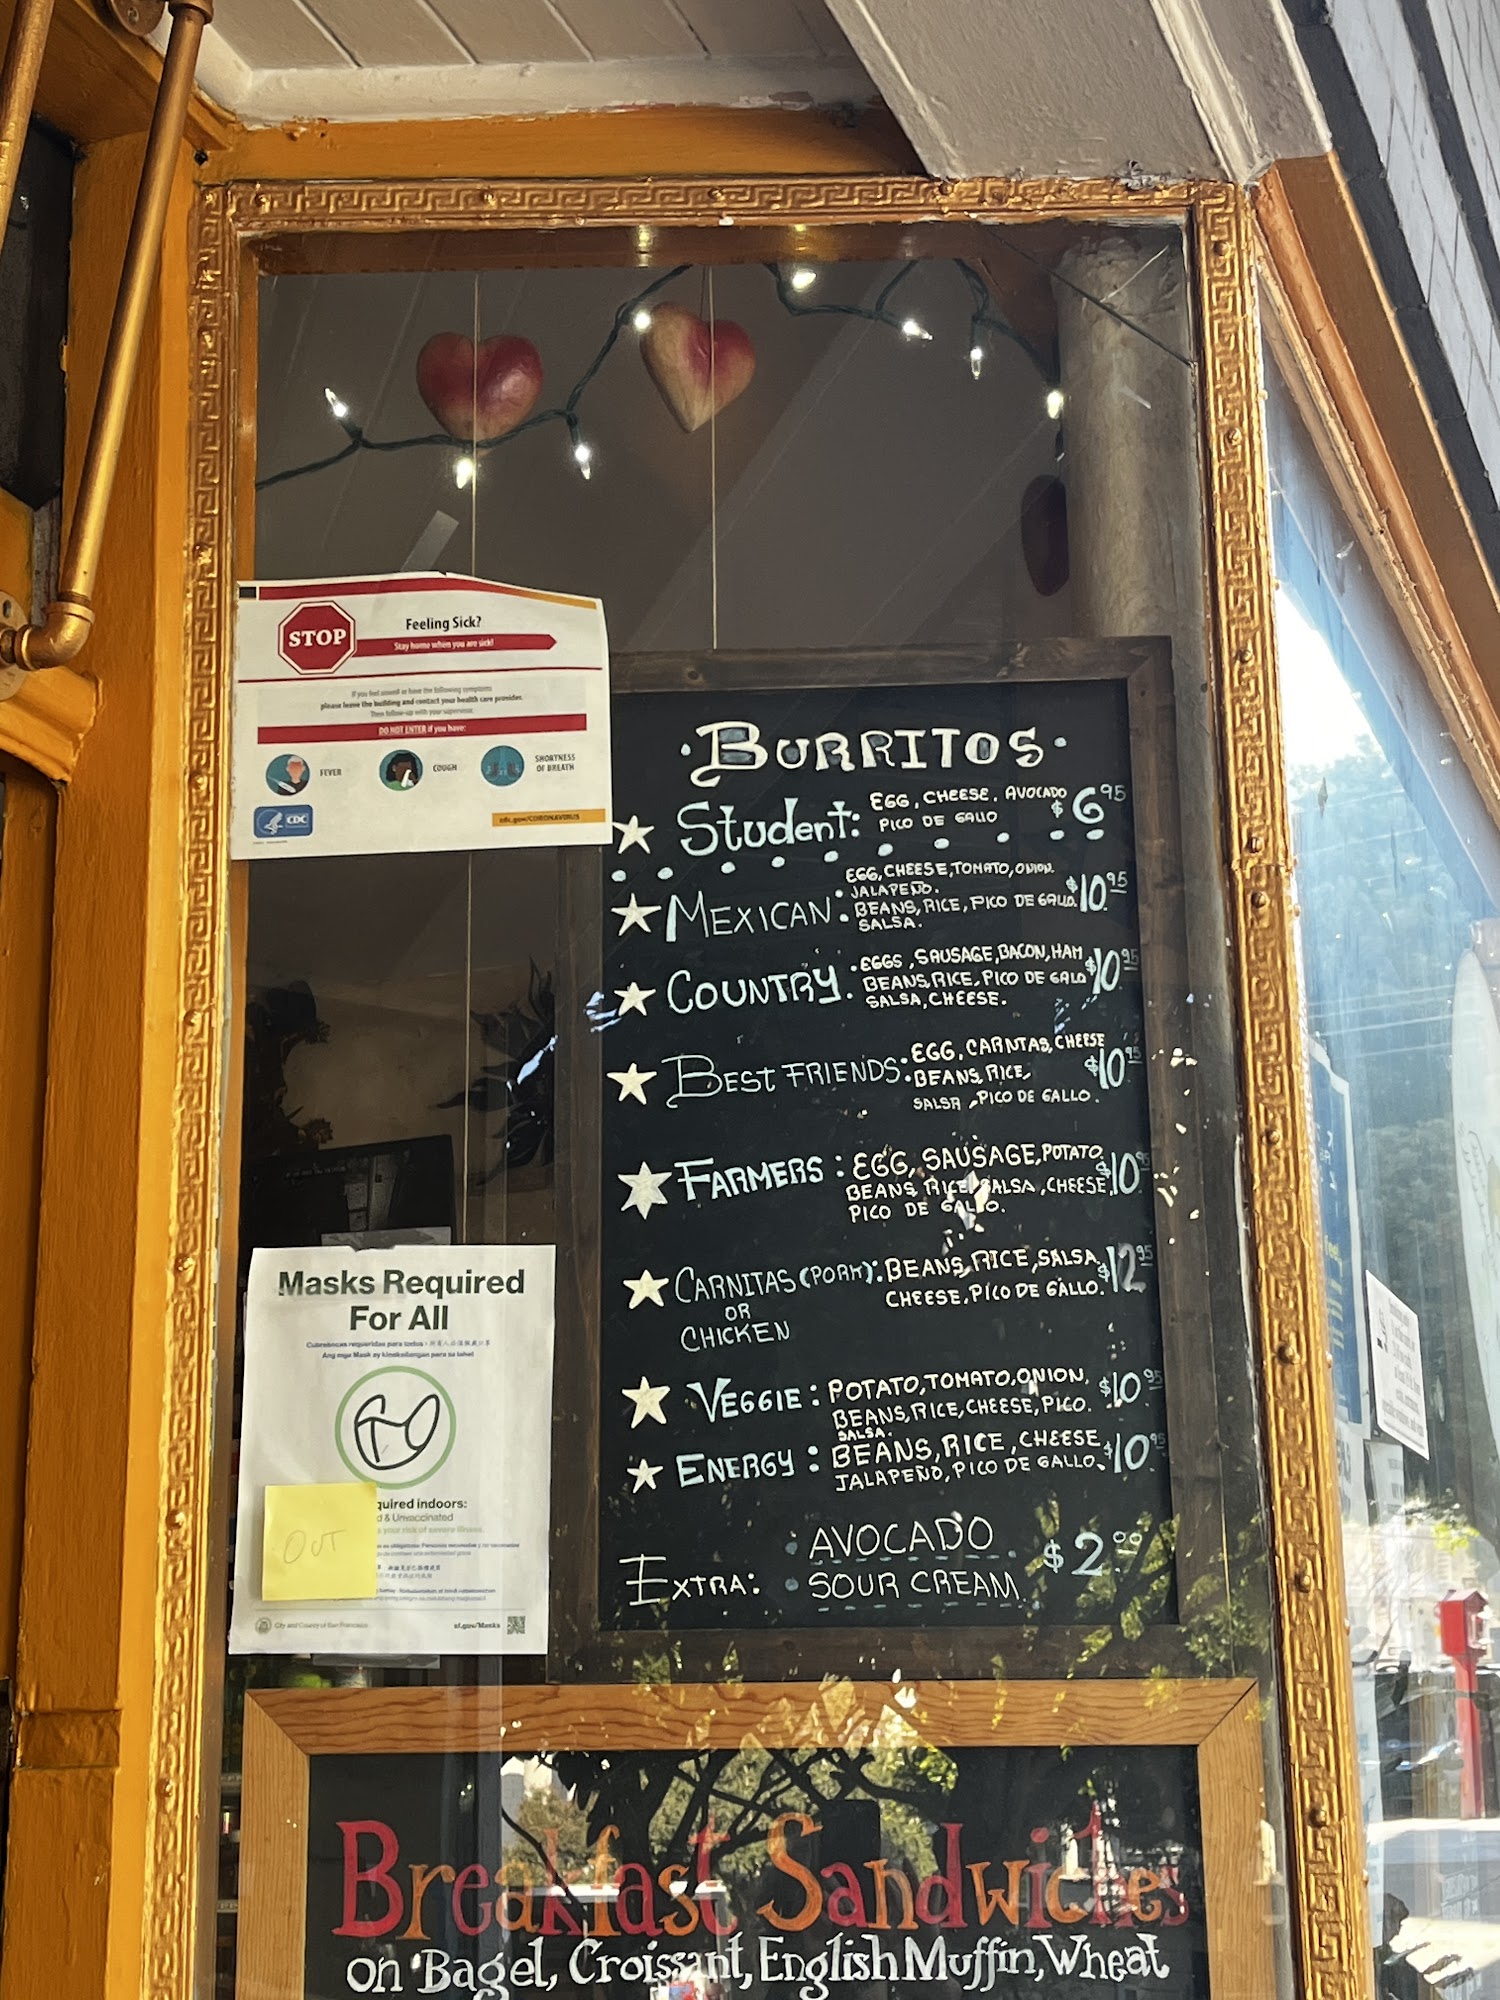 STOP
Feeling Sick?
Stay home when you are sick!
If you feel unwell or have the following symptoms
please leave the building and contact your health care provider.
Then follow-up with your supervisor.
DO NOT ENTER if you have:
FEVER
COUGH
SHORTNESS
OF BREATH
CDC
cdc.gov/CORONAVIRUS
·BURRITOS·
Student: EGG, CHEESE, AVOCADO $6.95
PICO DE GALLO
MEXICAN: EGG, CHEESE, TOMATO, ONION. $10.95
JALAPEÑO.
BEANS, RICE, PICO DE GALLO.
SALSA.
COUNTRY: EGGS, SAUSAGE, BACON, HAM $10.95
BEANS, RICE, PICO DE GALO
SALSA, CHEESE.
BEST FRIENDS: EGG, CARNTAS, CHEESE $10.95
BEANS, RICE,
SALSA, PICO DE GALLO.
FARMERS: EGG, SAUSAGE, POTATO $10.95
BEANS, RICE, SALSA, CHEESE,
PICO DE GALLO.
CARNITAS (PORK): BEANS, RICE, SALSA, $12.95
OR CHEESE, PICO DE GALLO.
CHICKEN
VEGGIE: POTATO, TOMATO, ONION, $10.95
BEANS, RICE, CHEESE, PICO.
SALSA.
ENERGY: BEANS, RICE, CHEESE, $10.95
JALAPEÑO, PICO DE GALLO.
EXTRA: · AVOCADO $2.00
· SOUR CREAM
Masks Required
For All
Cubrebocas requeridas para todos
Ang mga Mask ay kinakailangan para sa lahat
quired indoors:
d & Unvaccinated
s your risk of severe illness.
OUT
City and County of San Francisco
sf.gov/Masks
Breakfast Sandwiches
on Bagel, Croissant, English Muffin, Wheat